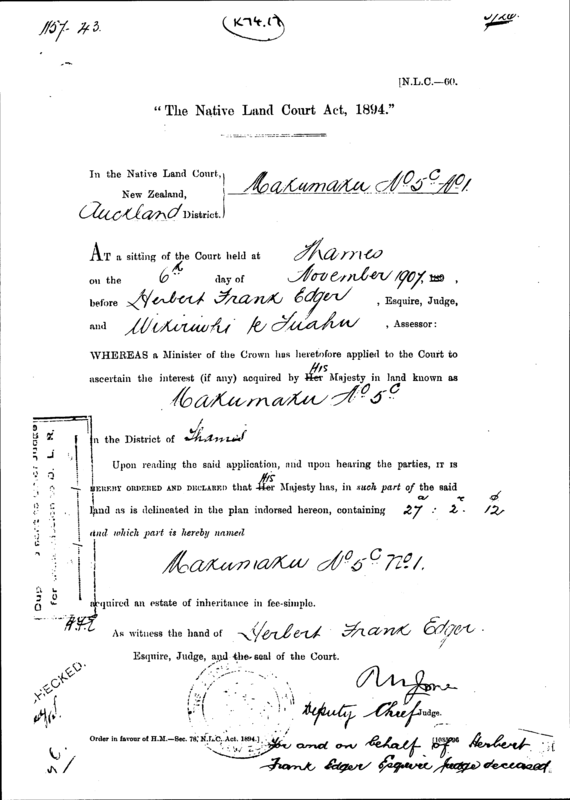 1157-43.
K74.17
[N.L.C.—60.
"The Native Land Court Act, 1894."
In the Native Land Court,
New Zealand,
Auckland District.
Makumaku No 5C No 1.
AT a sitting of the Court held at Thames
on the 6th day of November 1907,
before Herbert Frank Edger, Esquire, Judge,
and Wikiriwhi te Tuahu, Assessor:
WHEREAS a Minister of the Crown has heretofore applied to the Court to
ascertain the interest (if any) acquired by Her His Majesty in land known as
Makumaku No 5C
in the District of Thames
Upon reading the said application, and upon hearing the parties, IT IS
HEREBY ORDERED AND DECLARED that Her His Majesty has, in such part of the said
land as is delineated in the plan indorsed hereon, containing 27a : 2r . 12p
and which part is hereby named
Makumaku No 5C No 1.
acquired an estate of inheritance in fee-simple.
H.F.E
As witness the hand of Herbert Frank Edger.
Esquire, Judge, and the seal of the Court.
CHECKED.
Deputy Chief Judge.
Order in favour of H.M.—Sec. 78, N.L.C. Act. 1894.]
For and on behalf of Herbert
Frank Edger Esquire Judge deceased